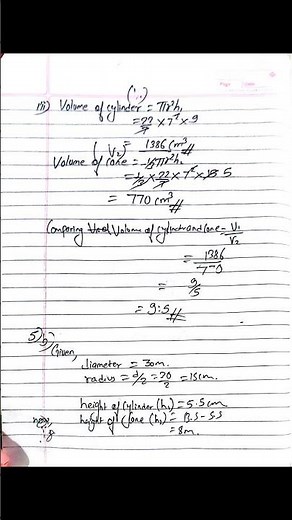 (V₁)
iii) Volume of cylinder = πr²h₁
= 22/7 × 7² × 9
= 1386 cm³
(V₂)
Volume of cone = 1/3 πr²h₂
= 1/3 × 22/7 × 7² × 15 5
= 770 cm³
Comparing the Volume of cylinder and cone = V₁/V₂
= 1386/770
= 9/5
= 9:5
5) b)
Given,
diameter = 30m.
radius = d/2 = 20/2 = 15cm.
height of cylinder (h₁) = 5.5cm
now, height of cone (h₂) = 13.5-5.5
= 8m.